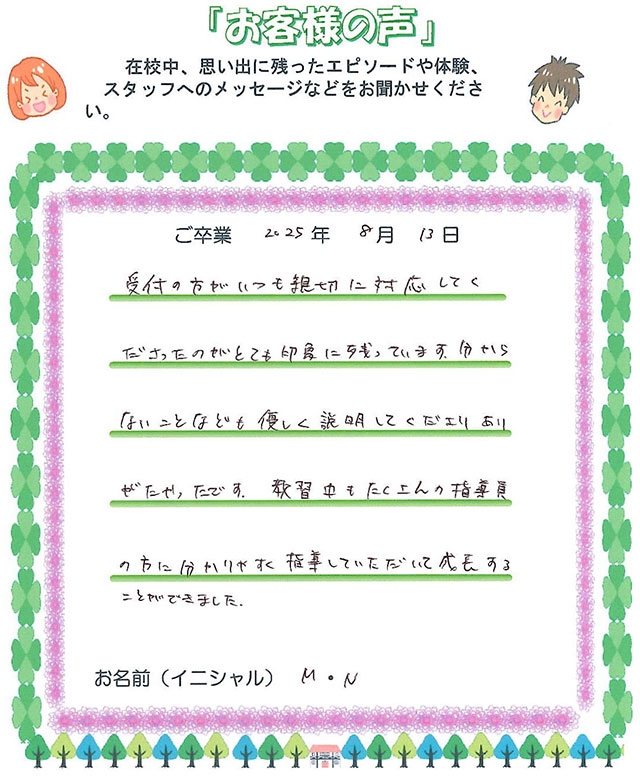 「お客様の声」
在校中、思い出に残ったエピソードや体験、
スタッフへのメッセージなどをお聞かせくださ
い。
ご卒業 2025年 8月 13日
受付の方がいつも親切に対応してく
ださったのがとても印象に残っています。分から
ないことなども優しく説明してくださり あり
がたかったです。教習中もたくさんの指導員
の方に分かりやすく指導していただいて成長する
ことができました。
お名前（イニシャル） M・N